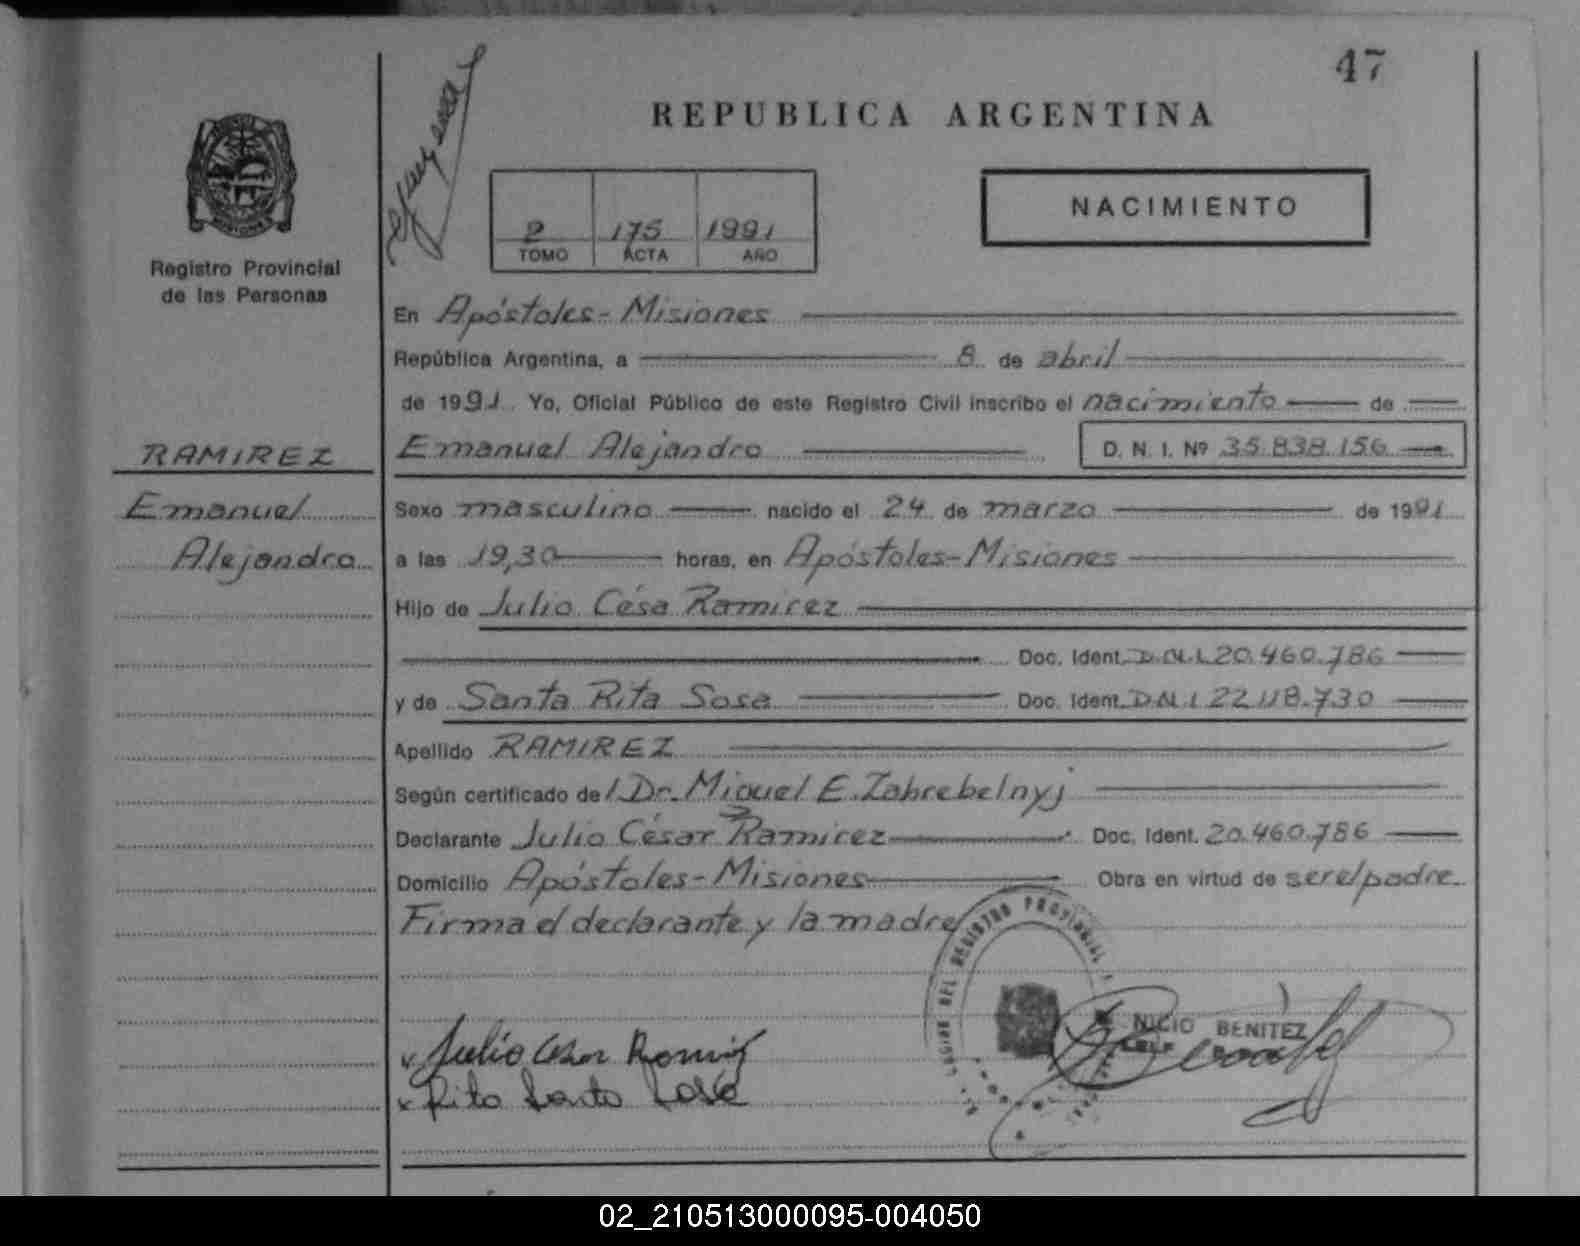 47
REPUBLICA ARGENTINA
2 175 1991
TOMO ACTA AÑO
NACIMIENTO
Registro Provincial
de las Personas
En Apóstoles - Misiones
República Argentina, a 8 de abril
de 1991 Yo, Oficial Público de este Registro Civil inscribo el nacimiento de
RAMIREZ
Emanuel Alejandro D. N. I. Nº 35.838.156
Emanuel
Alejandro
Sexo masculino nacido el 24 de marzo de 1991
a las 19,30 horas, en Apóstoles - Misiones
Hijo de Julio Césa Ramirez
Doc. Ident. D.N.I. 20.460.786
y de Santa Rita Sosa Doc. Ident. D.N.I 22.118.730
Apellido RAMIREZ
Según certificado del Dr. Miguel E. Zabrebelnyj
Declarante Julio César Ramirez Doc. Ident. 20.460.786
Domicilio Apóstoles - Misiones Obra en virtud de ser el padre
Firma el declarante y la madre
DEL REGISTRO PROVINCIAL
NICIO BENITEZ
Julio Cesar Ramirez
Rita Santa Sosa
02_210513000095-004050